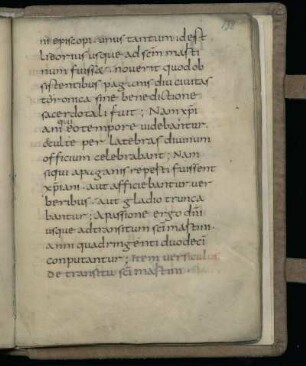 ni episcopi · unus tantum id est
litorius usque ad scm marti
num fuisse · noverit quod ob
sistentibus paganis diu civitas
toronica sine benedictione
sacerdotali fuit ; Nam xpi
ani qui eo tempore videbantur
oculte per latebras divinum
officium celebrabant ; Nam
siqui a paganis reperti fuissent
xpiani · aut afficiebantur ver
beribus · aut gladio trunca
bantur ; a passione ergo dni
usque ad transitum sci martini ·
anni quadringenti duodeci
conputantur ; Item versiculus
de transitu sci martini ·